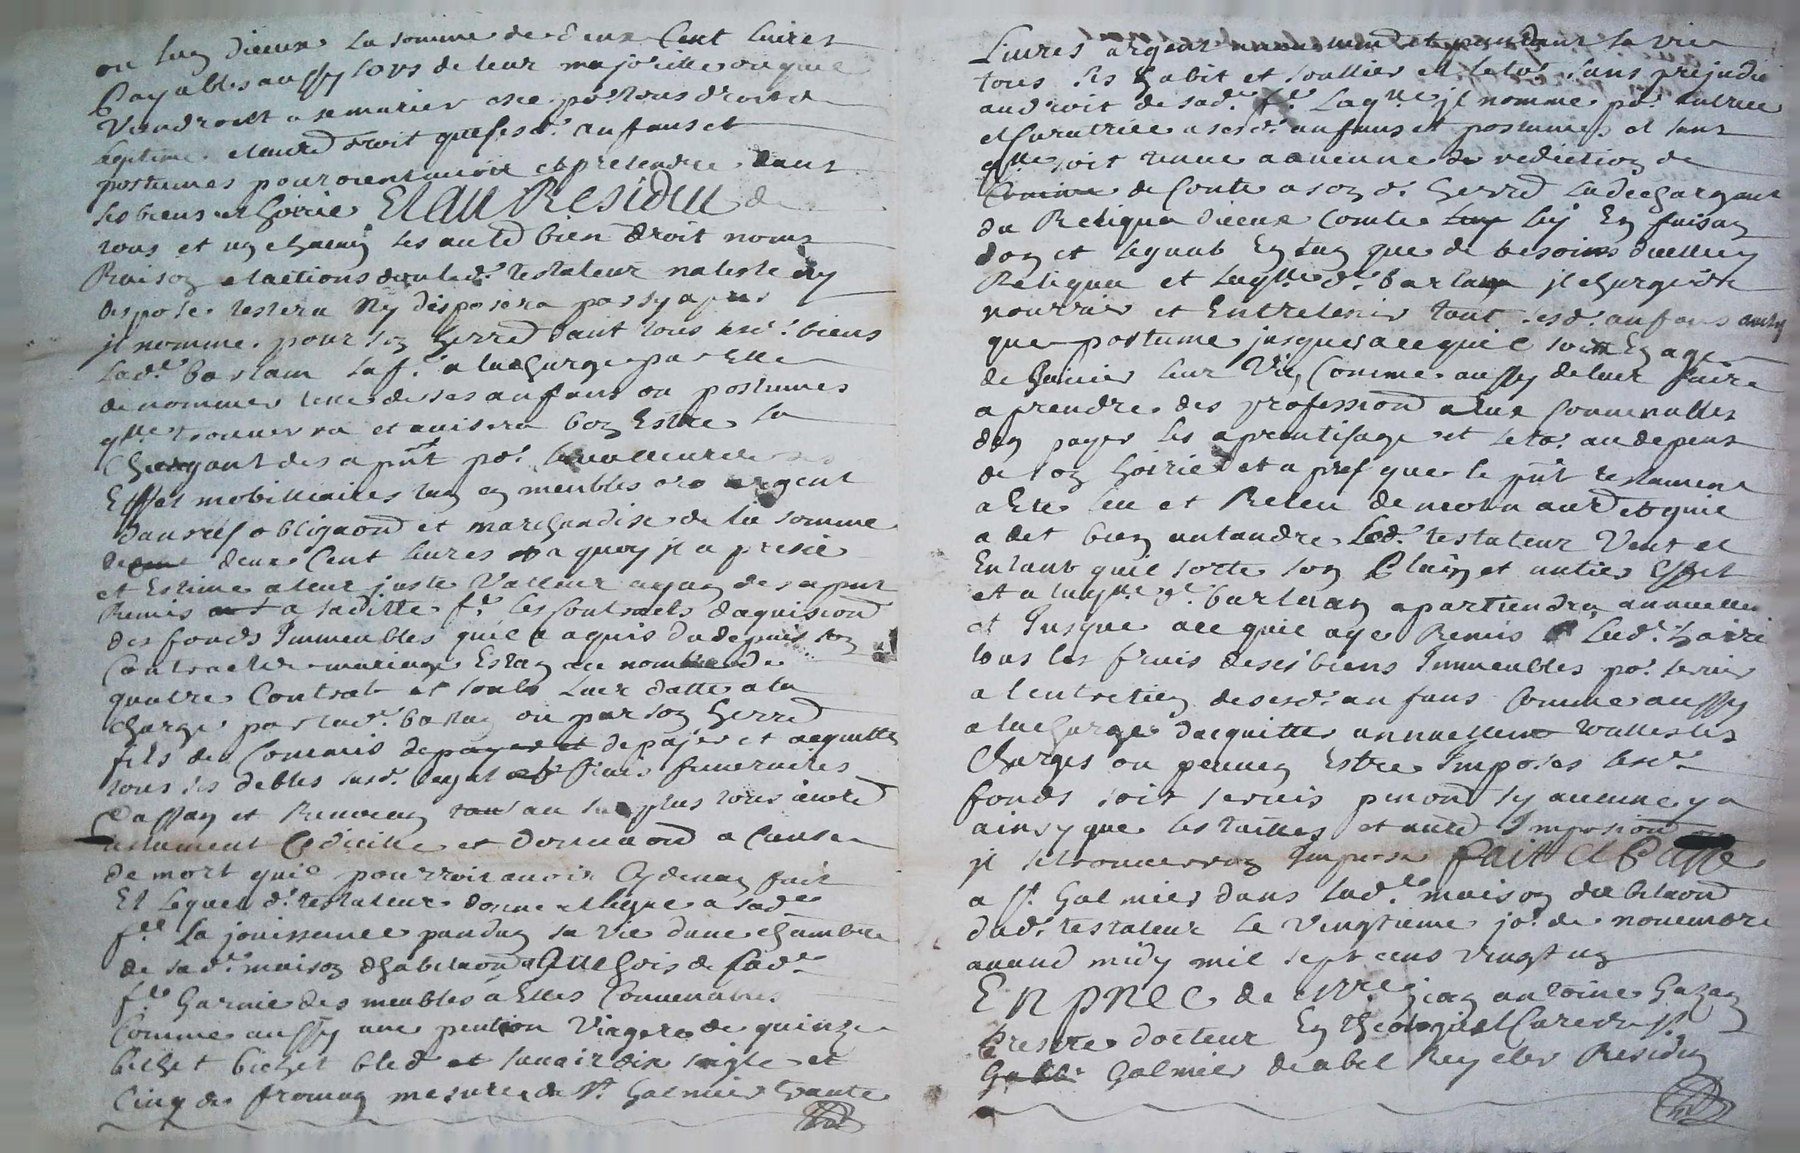 ou lun dieux la somme de deux Cent livres
Payables aussy lors de leur majoritté ou quil
Viendroit a se marier avec po.r tous droit de
legitime et autre droit que sesd.s anfans et
postumes pourroient avoir et pretendre dans
ses biens et hoirie Et au Residu de
tous et un chacun ses autre bien droit noms
Raison et actions dont led.t testateur na leste ny
dispose testera Ny disposera par sy apres
jl nomme pour son herre dant tous sesd.s biens
lad.te barlam sa f.e a la charge par Elle
de nommer lun desses anfans ou postumes
q.lle trouverra et avisera bon Estre la
Chargant des a p.nt po.r la valleur de ses
Effet mobilliaires tan en meubles or argent
danrées obligaon et marchandise de la somme
de deux Cent livres a quoy jl a prisé
et Estime a leur juste Valleur ayan des a pnt
Remis a saditte f.e les Contracts daquision
des fonds Immeubles quil a aquis du depuis son
Contract de mariage Estan au nombre de
quatre Contrat et soubs leur datte a la
charge par lad.te barlan ou par son herre
fils de Commis depayer et de pajer et acquitter
tous ses debtes susd. legat et frais funeraires
Cassan et Revocan tout au surplus tous autre
testament Codicille et donnaon a Cause
de mort quil pourroit avoir Cydevan fait
Et lequel d.t testateur donne et legue a sad.te
f.e la jouissence pandan sa vie dune chambre
de sad.te maison dhabitaon au Chois de sad.te
f.e Garnie des meubles a Elles Convenables
Comme aussy une pention Viagere de quinze
bichet bichet bled et savoir dix seigle et
Cinq de froman mesure de S.t Galmier trante
Livres argent annuellement et pandant sa vie
tous ses habit et soullier et le to.t sans prejudice
au droit de sad.te f.e laq.lle jl nomme po.r tutrice
et Curatrice a sesd.s anfans et postumes et sans
q.lle soit tenue a aucune de rediction de
Comme de Conte a son d.t herre la dechargant
du Reliqua dieux Comte luy En faisan
don et leguat En tan que de besoin duellui
Reliqua et laq.lle d.te barlam jl charge de
nourrir et Entretenir tant sesd.s anfans aussy
que postume jusques a ce quil soit En age
de Gainier leur Vie Comme aussy de leur faire
aprendre des profession a Eux Convenables
den payer les aprentisage et le to.t au depens
de son hoirie et a pres que le p.nt testament
a Ete leu et Releu de mot a autre et quil
a det bien antandre led.t testateur Veut et
Entant quil sorte son Plain et antier Effet
et a laq.lle d.te barlam apartiendra annuellem
et Jusque a ce quil aye Remis lad. hoirie
tous les fruis deses biens Immeubles po.r servir
a lentretien de sesd.s anfans Comme aussy
a la charge daquitter annuellem touttes les
Charges ou peuven Estre Imposes lesd.s
fonds soit servis penon sy aucune y a
ainsy que les tailles et autre Imposion
jl se trouverron Impose fait Et Passé
a S.t Galmier dans lad.te maison dabitaon
dud.t testateur le Vingtieme jo.r de novembre
avand midy mil sept cens vingt un
EN PNCE de Mre jean antoine Gazan
Prestre docteur En theologie et Cure de S.t
Galmier de abel Rey clerc Residan